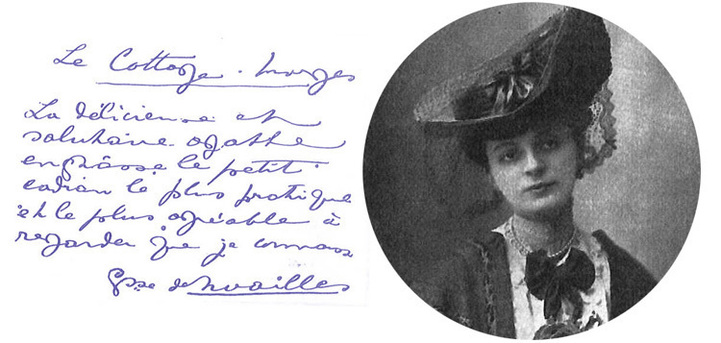 Le Cottage. Morges
La délicieuse et
salutaire agathe
enchâsse le petit
cadran le plus pratique
et le plus agréable à
regarder que je connaisse
Csse de Noailles